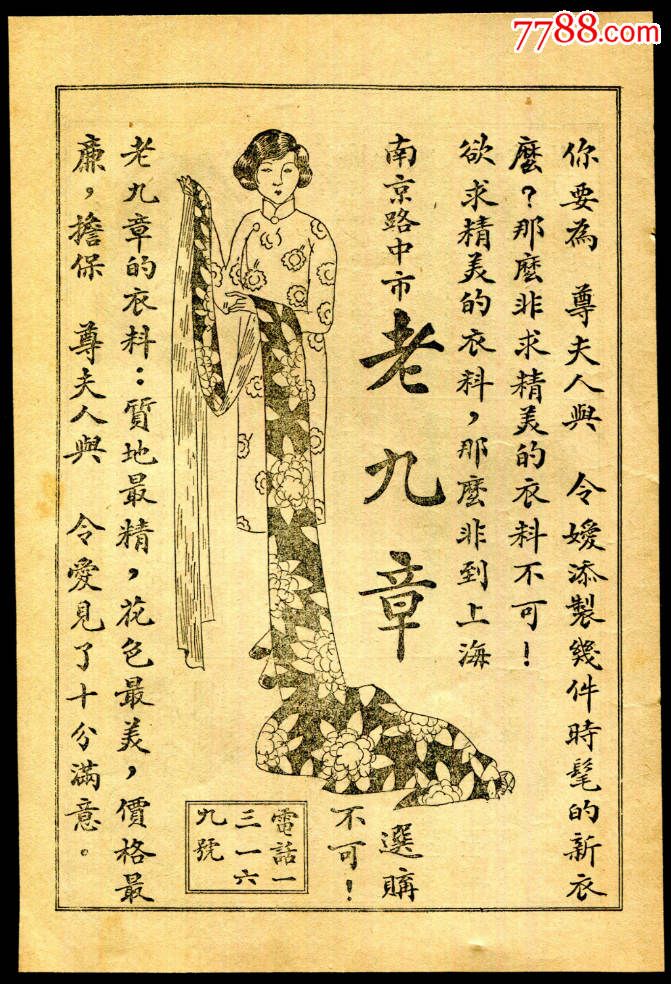 7788.com
你要為　尊夫人與　令嬡添製幾件時髦的新衣
麼？那麼非求精美的衣料不可！
欲求精美的衣料，那麼非到上海
南京路中市
老九章
選購
不可！
電話一
三一六
九號
老九章的衣料：質地最精，花色最美，價格最
廉，擔保　尊夫人與　令愛見了十分滿意。